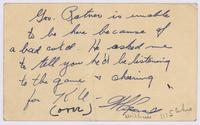 Gov. Ratner is unable
to be here because of
a bad cold. He asked me
to tell you he'd be listening
to the game & cheering
for K.U.
(over)